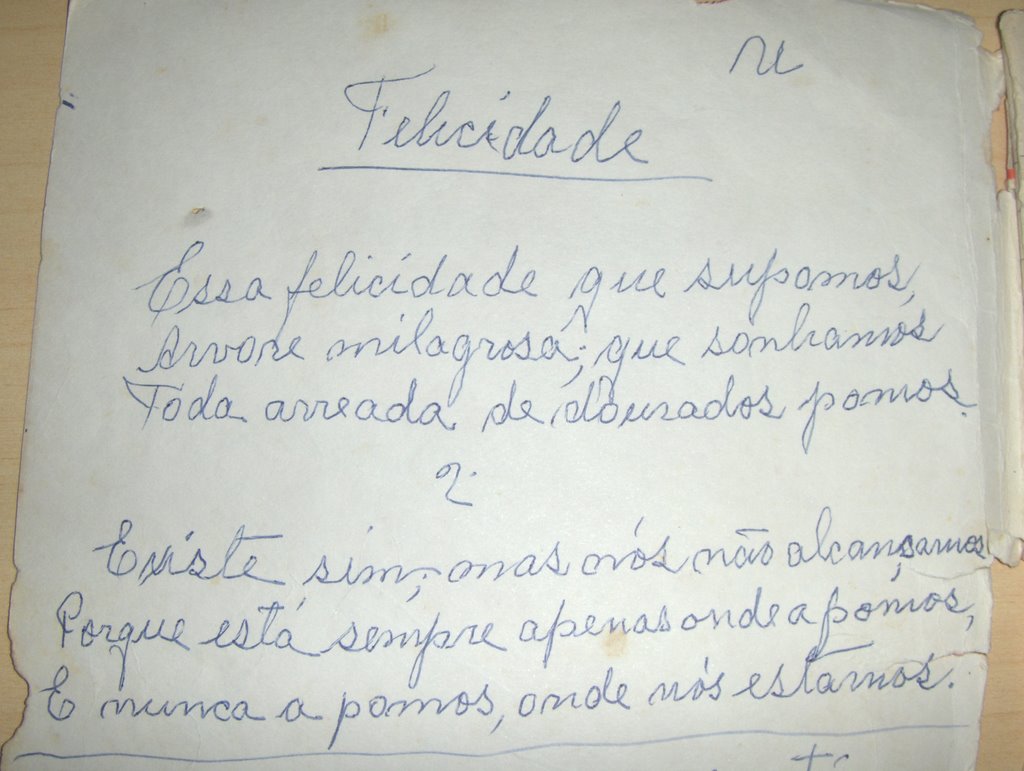 Felicidade
Essa felicidade que supomos,
Arvore milagrosa; que sonhamos
Toda arreada de dourados pomos.
2.
Existe sim; mas nós não alcançamos
Porque está sempre apenas onde a pomos,
E nunca a pomos, onde nós estamos.